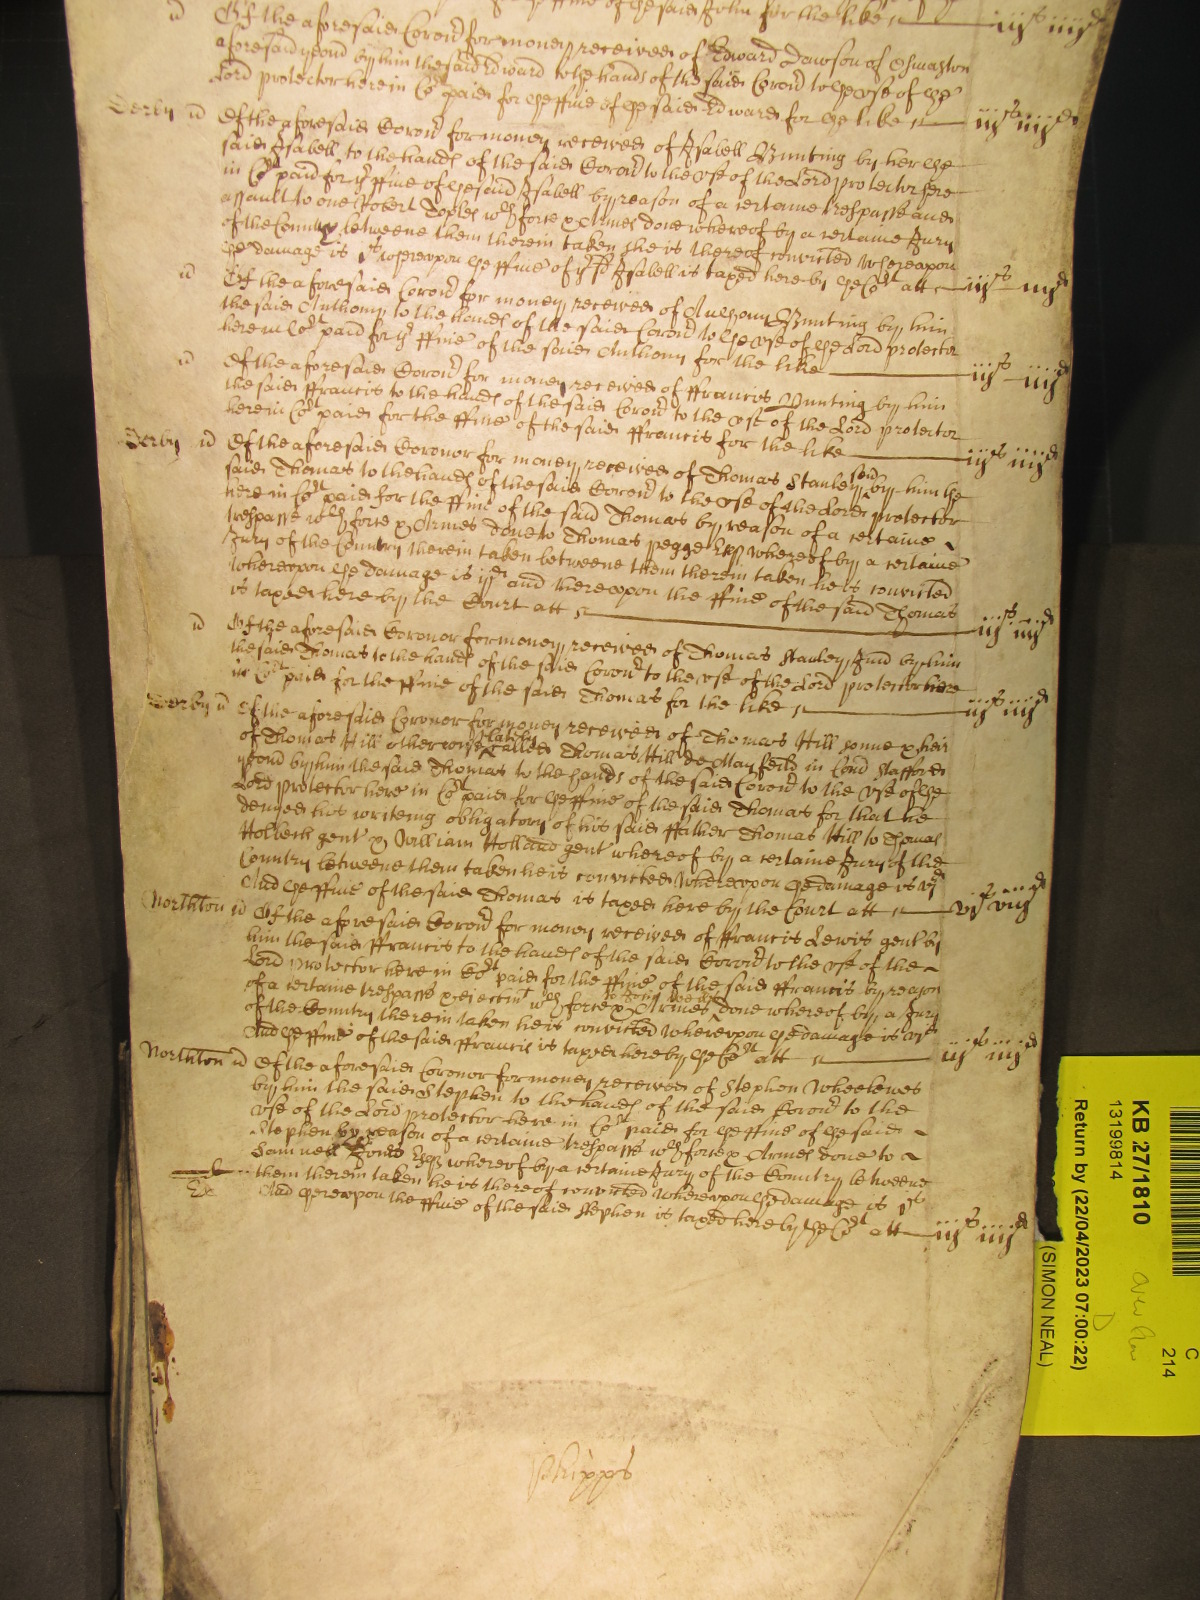 ffine of the said John for the like iijs iiijd
id Of the aforesaid Coron'd for money received of Edward Dawson of Osmaston
aforesaid yeom by him the said Edward to the hands of the said Coron'd to the use of the
Lord protector here in Co't paid for the ffine of the said Edward for the like iijs iiijd
Derby id Of the aforesaid Coron'd for money received of Isabell Bunting by her the
said Isabell to the hands of the said Coron'd to the use of the Lord protector here
in Co't paid for ye ffine of the said Isabell by reason of a certaine trespasse and
assault to one Robert Toples wth force & Armes done whereof by a certaine Jury
of the Country betweene them therein taken she is thereof convicted Whereupon
the damage is js whereupon the ffine of ye sd Isabell is taxed here by the Co't att iijs iiijd
id Of the aforesaid Coron'd for money received of Anthony Bunting by him
the said Anthony to the hands of the said Coron'd to the use of the Lord protector
here in Co't paid for ye ffine of the said Anthony for the like iijs iiijd
id Of the aforesaid Coron'd for money received of ffrancis Bunting by him
the said ffrancis to the hands of the said Coron'd to the use of the Lord protector
here in Co't paid for the ffine of the said ffrancis for the like iijs iiijd
Derby id Of the aforesaid Coronor for money received of Thomas Stanley sen by him the
said Thomas to the hands of the said Coron'd to the use of the Lord protector
here in Co't paid for the ffine of the said Thomas by reason of a certaine
trespasse wth force & Armes done to Thomas pegge Esq whereof by a certaine
Jury of the Country therein taken betweene them therein taken he is convicted
Whereupon the damage is ijd and thereupon the ffine of the said Thomas
is taxed here by the Court att iijs iiijd
id Of the aforesaid Coronor for money received of Thomas Stanley Jund by him
the said Thomas to the hands of the said Coron'd to the use of the Lord protector here
in Co't paid for the ffine of the said Thomas for the like iijs iiijd
Derby id Of the aforesaid Coronor for money received of Thomas Hill sonne & heir
of Thomas Hill otherwise lately called Thomas Hill de Mayfeild in Com Stafford
yeom by him the said Thomas to the hands of the said Coron'd to the use of the
Lord protector here in Co't paid for the ffine of the said Thomas for that he
denyed his writeing obligatory of his said ffather Thomas Hill to Thomas
Hollech gent & William Holland gent whereof by a certaine Jury of the
Country betweene them taken he is convicted Whereupon the damage is vjd
And the ffine of the said Thomas is taxed here by the Court att vjs viijd
Northton id Of the aforesaid Coron'd for money received of ffrancis Lewis gent by
him the said ffrancis to the hands of the said Coron'd to the use of the
Lord protector here in Co't paid for the ffine of the said ffrancis by reason
of a certaine trespasse & ejectmt wth force & Armes done whereof by a Jury
of the Country therein taken he is convicted Whereupon the damage is vjs
And the ffine of the said ffrancis is taxed here by the Co't att iijs iiijd
Northton id Of the aforesaid Coronor for money received of Stephen Wheelewes
by him the said Stephen to the hands of the said Coron'd to the
use of the Lord protector here in Co't paid for the ffine of the said
Stephen by reason of a certaine trespasse wth force & Armes done to
Samuell Jones Esq whereof by a certaine Jury of the Country betweene
them therein taken he is thereof convicted Whereupon the damage is js
Ex And thereupon the ffine of the said Stephen is taxed here by the Co't att iijs iiijd
Phipps
KB 27/1810
13199814
Return by (22/04/2023 07:00:22)
(SIMON NEAL)
C
214
D